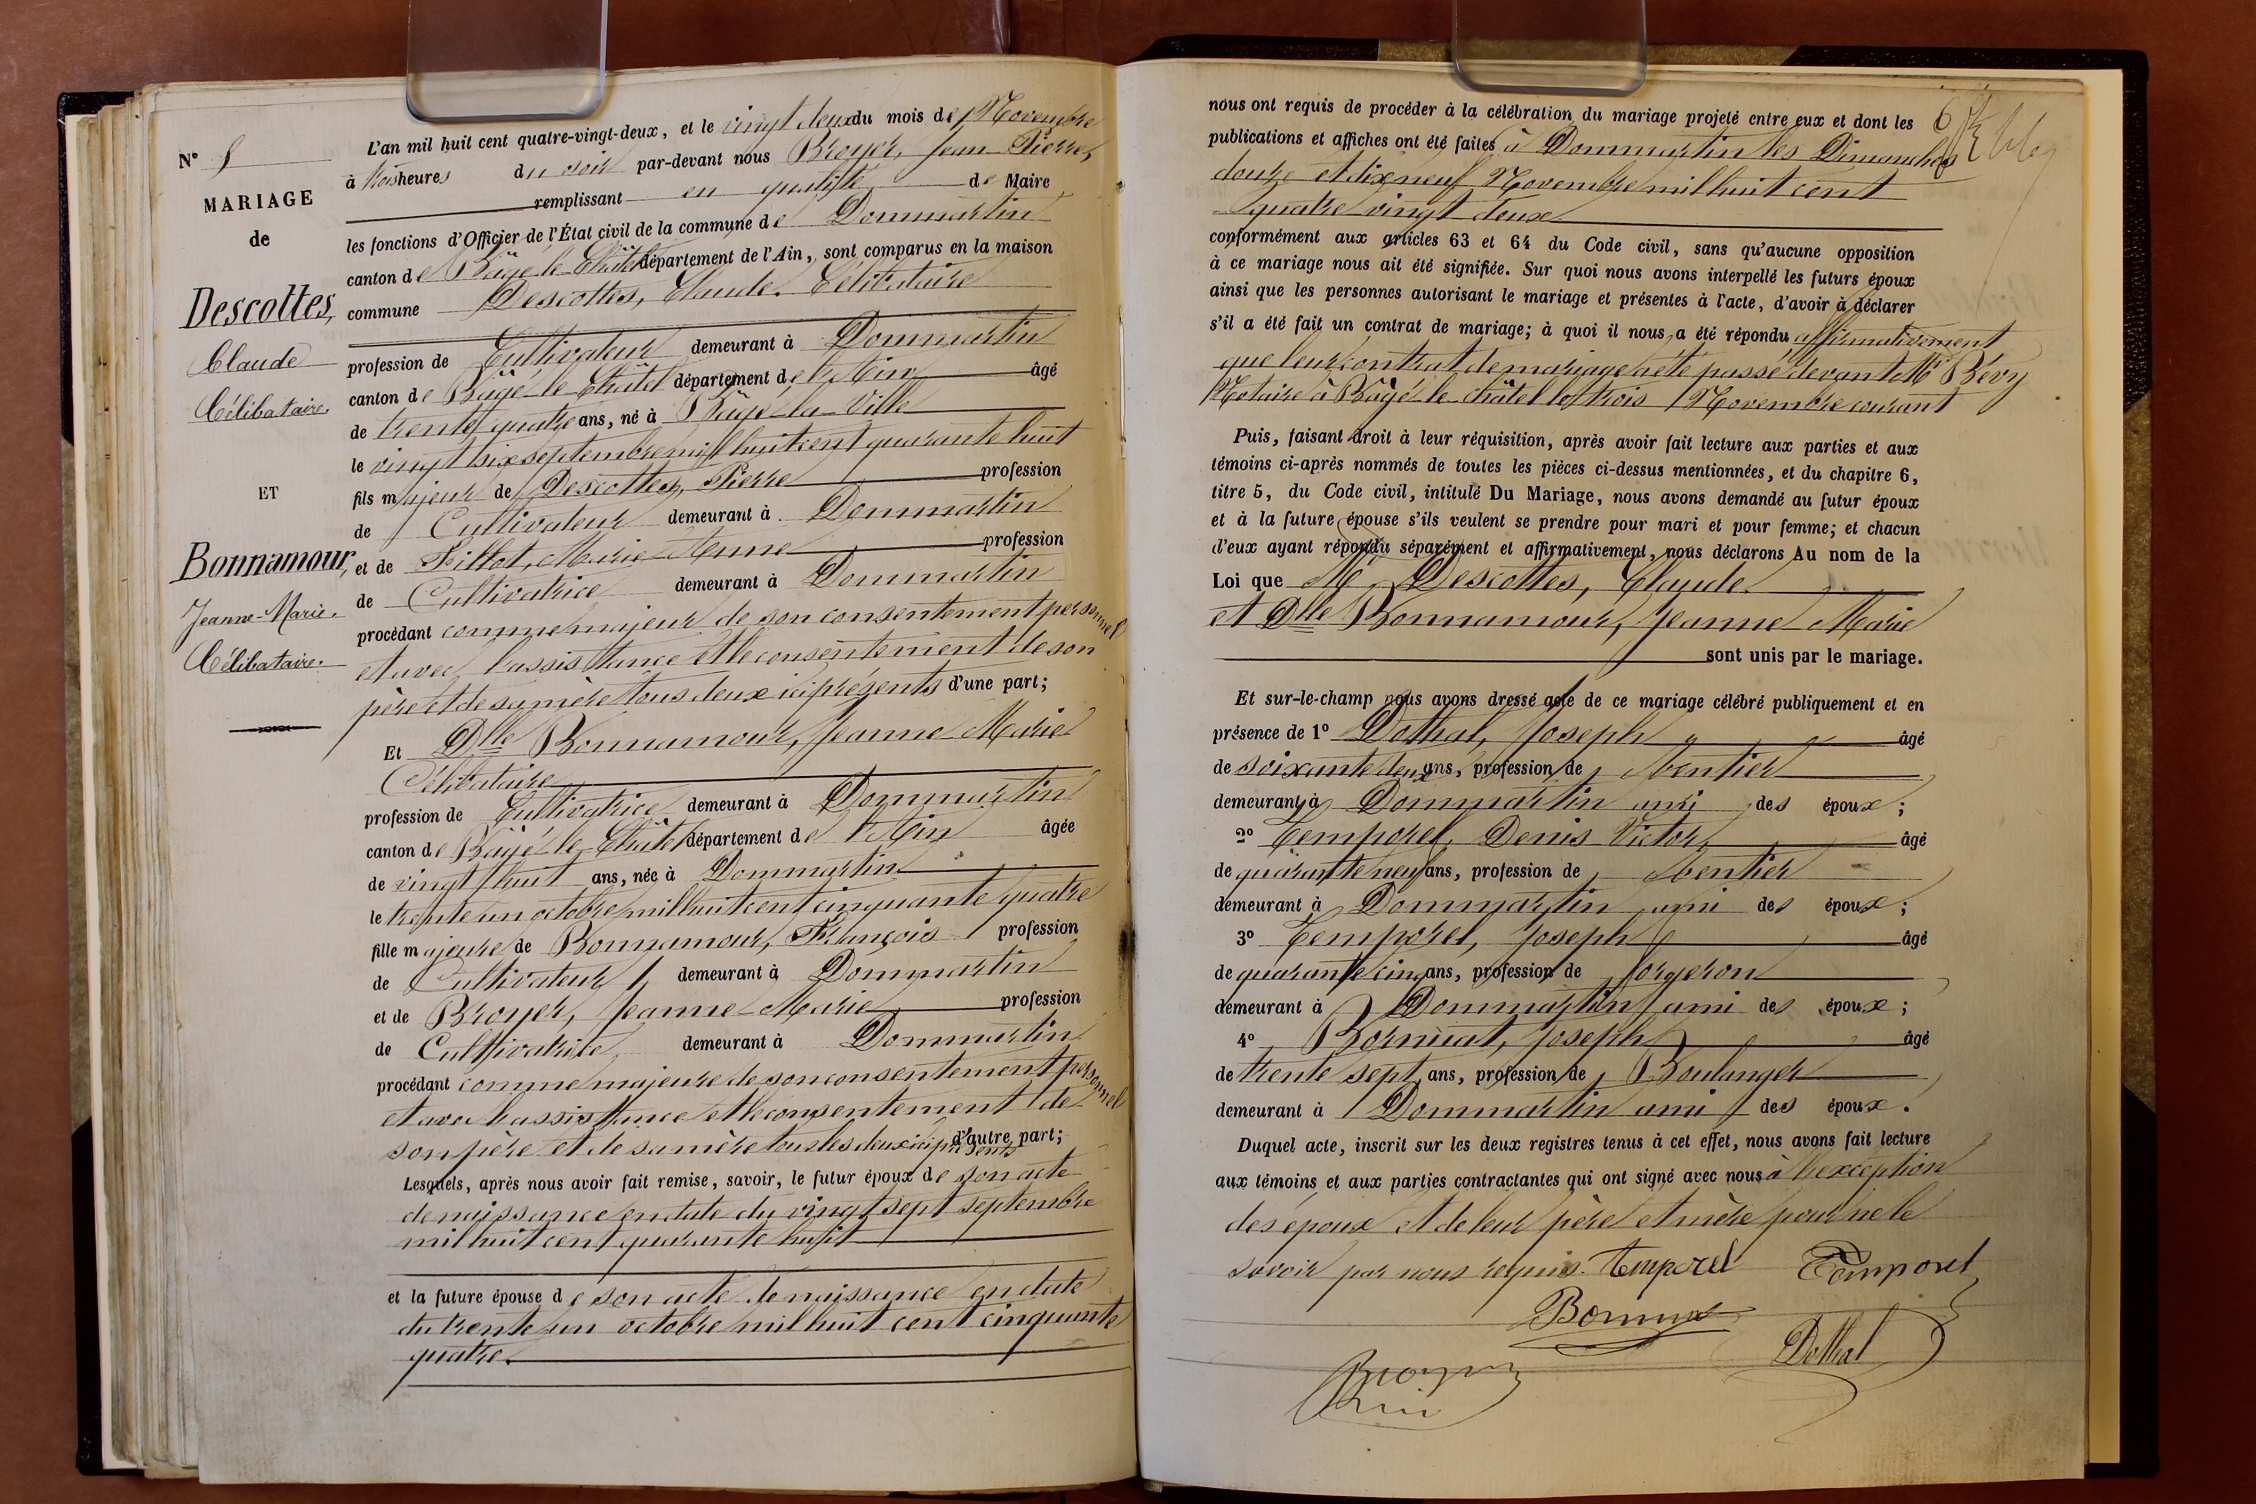 N° 8
MARIAGE
de
Descottes,
Claude
Célibataire.
ET
Bonnamour,
Jeanne-Marie.
Célibataire.
L'an mil huit cent quatre-vingt-deux, et le vingt deux du mois de Novembre
à trois heures du soir par-devant nous Broyer, Jean Pierre,
remplissant en qualité de Maire
les fonctions d'Officier de l'État civil de la commune de Dommartin
canton de Bâgé-le-Châtel département de l'Ain, sont comparus en la maison
commune Descottes, Claude. Célibataire
profession de Cultivateur demeurant à Dommartin
canton de Bâgé-le-Châtel département de l'Ain âgé
de trente quatre ans, né à Bâgé-la-Ville
le vingt six septembre mil huit cent quarante huit
fils majeur de Descottes, Pierre profession
de Cultivateur demeurant à Dommartin
et de Fillot, Marie-Anne profession
de Cultivatrice demeurant à Dommartin
procédant comme majeur de son consentement personnel
et avec l'assistance et le consentement de son
père et de sa mère tous deux ici présents d'une part;
Et Dlle Bonnamour, Jeanne-Marie
Célibataire
profession de Cultivatrice demeurant à Dommartin
canton de Bâgé-le-Châtel département de l'Ain âgée
de vingt huit ans, née à Dommartin
le trente un octobre mil huit cent cinquante quatre
fille majeure de Bonnamour, François profession
de Cultivateur demeurant à Dommartin
et de Broyer, Jeanne-Marie profession
de Cultivatrice, demeurant à Dommartin
procédant comme majeure de son consentement personnel
et avec l'assistance et le consentement de
son père et de sa mère tous les deux ici présents d'autre part;
Lesquels, après nous avoir fait remise, savoir, le futur époux de son acte
de naissance en date du vingt sept septembre
mil huit cent quarante huit
et la future épouse de son acte de naissance en date
du trente un octobre mil huit cent cinquante
quatre.
nous ont requis de procéder à la célébration du mariage projeté entre eux et dont les
publications et affiches ont été faites à Dommartin les Dimanches
douze et dix neuf Novembre mil huit cent
quatre vingt deux
conformément aux articles 63 et 64 du Code civil, sans qu'aucune opposition
à ce mariage nous ait été signifiée. Sur quoi nous avons interpellé les futurs époux
ainsi que les personnes autorisant le mariage et présentes à l'acte, d'avoir à déclarer
s'il a été fait un contrat de mariage; à quoi il nous a été répondu affirmativement
que leur contrat de mariage a été passé devant Me Bévy
Notaire à Bâgé-le-châtel le trois Novembre courant
Puis, faisant droit à leur réquisition, après avoir fait lecture aux parties et aux
témoins ci-après nommés de toutes les pièces ci-dessus mentionnées, et du chapitre 6,
titre 5, du Code civil, intitulé Du Mariage, nous avons demandé au futur époux
et à la future épouse s'ils veulent se prendre pour mari et pour femme; et chacun
d'eux ayant répondu séparément et affirmativement, nous déclarons Au nom de la
Loi que Mr Descottes, Claude.
et Dlle Bonnamour, Jeanne Marie
sont unis par le mariage.
Et sur-le-champ nous avons dressé acte de ce mariage célébré publiquement et en
présence de 1° Dothal, Joseph âgé
de soixante deux ans, profession de rentier
demeurant à Dommartin ami des époux;
2° Temporel, Denis Victor, âgé
de quarante neuf ans, profession de rentier
demeurant à Dommartin ami des époux;
3° Temporel, Joseph âgé
de quarante cinq ans, profession de forgeron
demeurant à Dommartin ami des époux;
4° Bornuat, Joseph âgé
de trente sept ans, profession de Boulanger
demeurant à Dommartin ami des époux.
Duquel acte, inscrit sur les deux registres tenus à cet effet, nous avons fait lecture
aux témoins et aux parties contractantes qui ont signé avec nous à l'exception
des époux et de leur père et mère pour ne le
savoir par nous requis. temporel Temporel
Dothal
Broyer